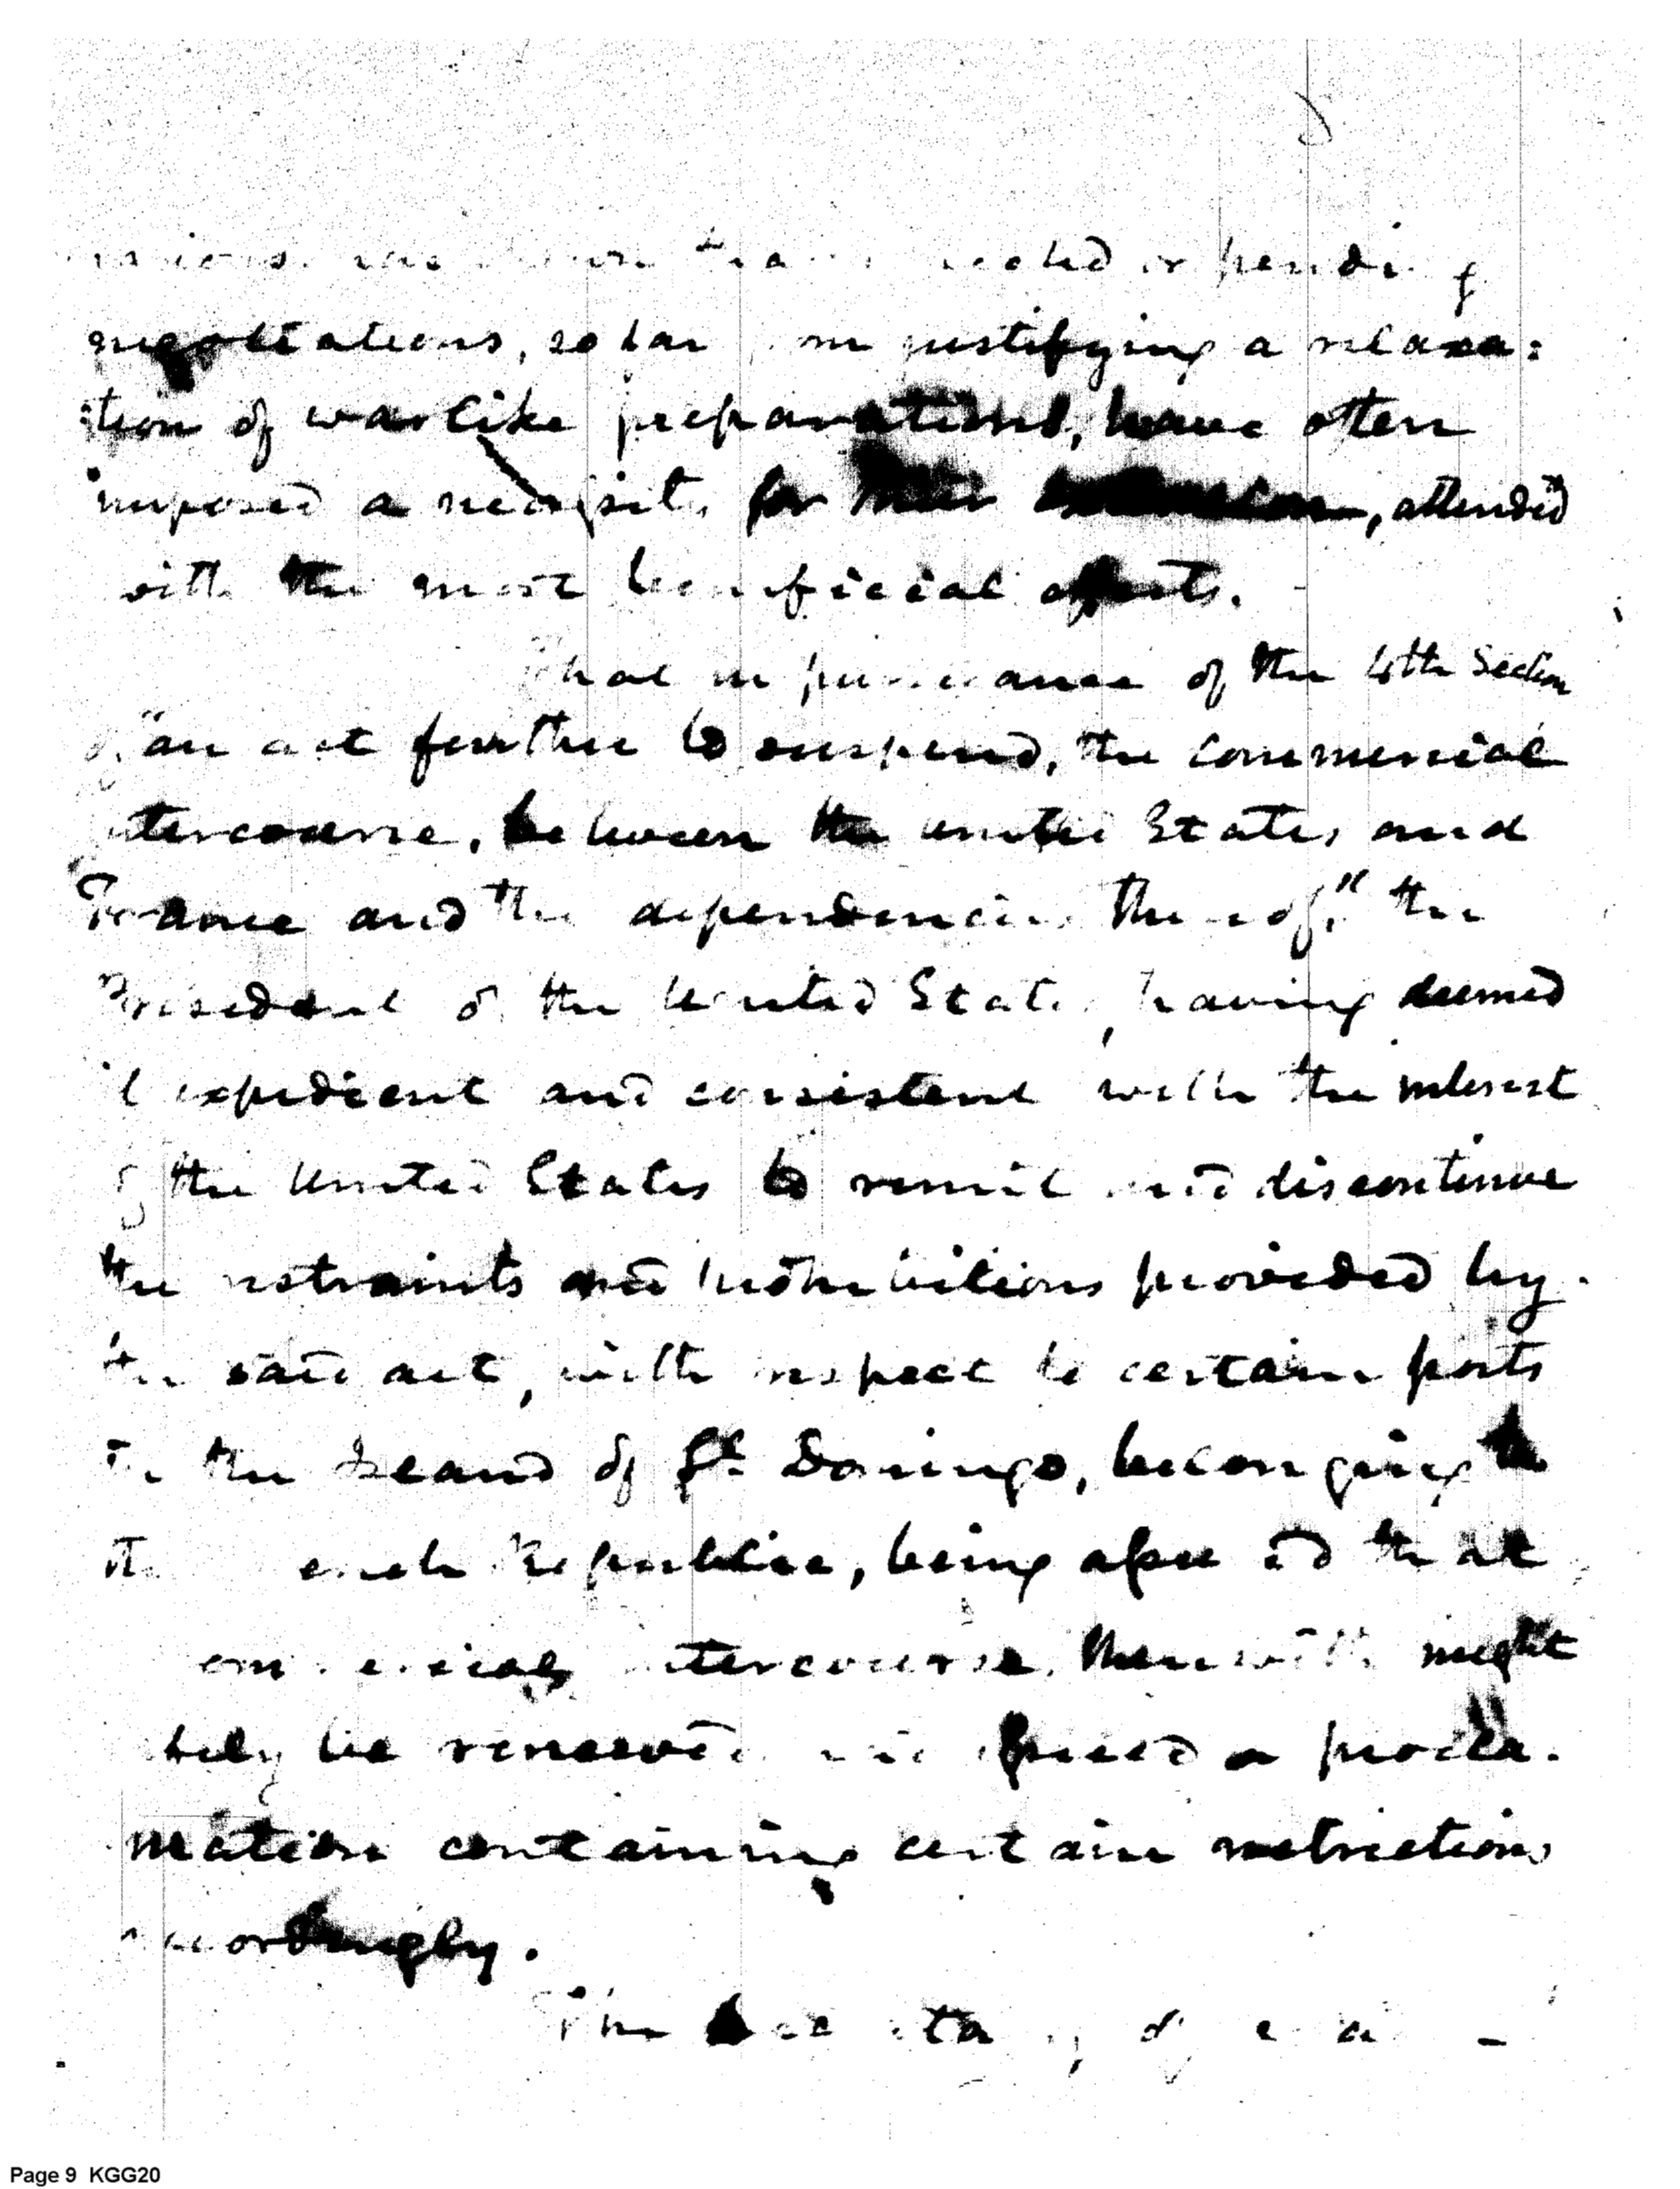 or pending
negotiations, so far from justifying a relaxa:
:tion of warlike preparations, have often
imposed a necessity for their extension, attended
with the most beneficial effects.
That in pursuance of the 4th Section
of "an act further to suspend, the commercial
intercourse, between the united States and
France and the dependencies thereof," the
President of the United States, having deemed
it expedient and consistent with the interest
of the United States to remit and discontinue
the restraints and prohibitions provided by
the said act, with respect to certain ports
in the Island of St. Domingo, belonging to
the French Republic, being assured that
commercial intercourse, therewith might
safely be renewed, issued a procla-
mation containing certain restrictions
accordingly.
The Secretary of
Page 9 KGG20